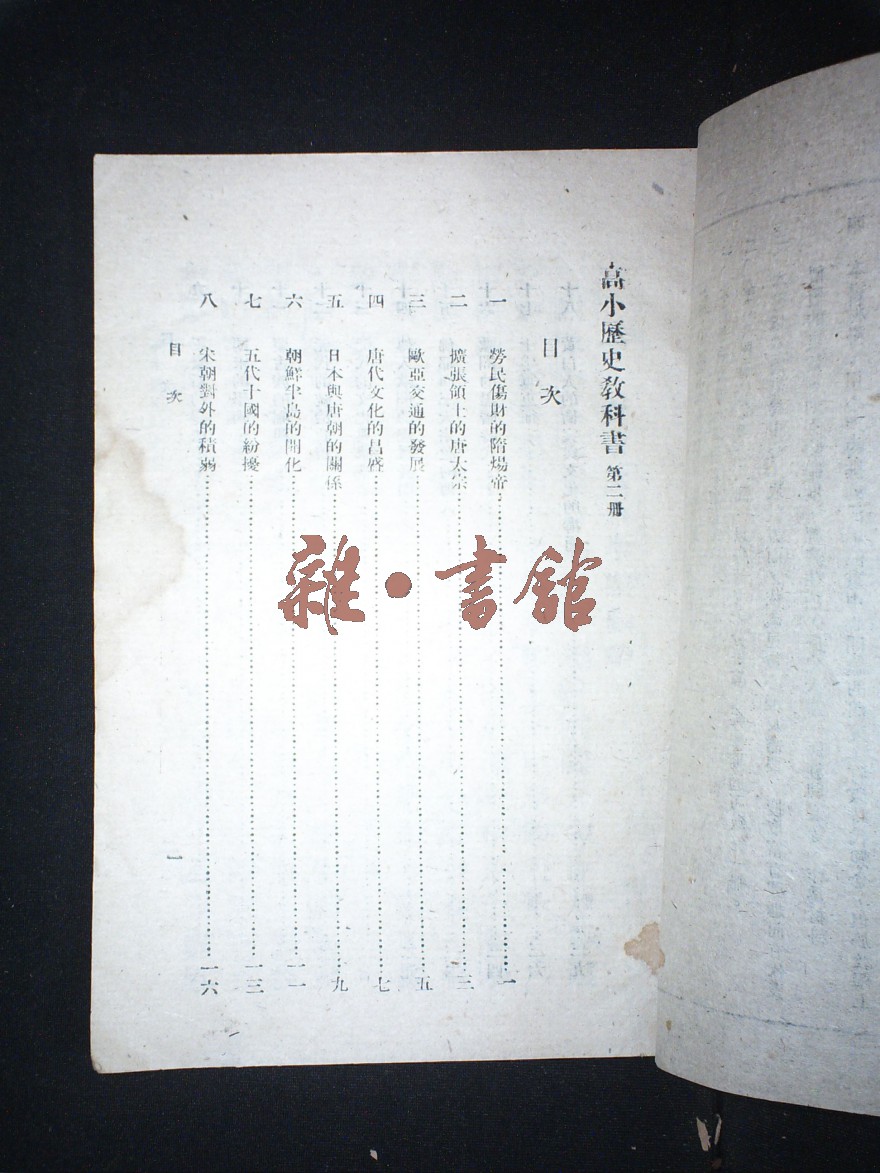 高小歷史教科書 第二册
目次
一 勞民傷財的隋煬帝⋯⋯一
二 擴張領土的唐太宗⋯⋯三
三 歐亞交通的發展⋯⋯五
四 唐代文化的昌盛⋯⋯七
五 日本與唐朝的關係⋯⋯九
六 朝鮮半島的開化⋯⋯一一
七 五代十國的紛擾⋯⋯一三
八 宋朝對外的積弱⋯⋯一六
目次 一
雜·書館